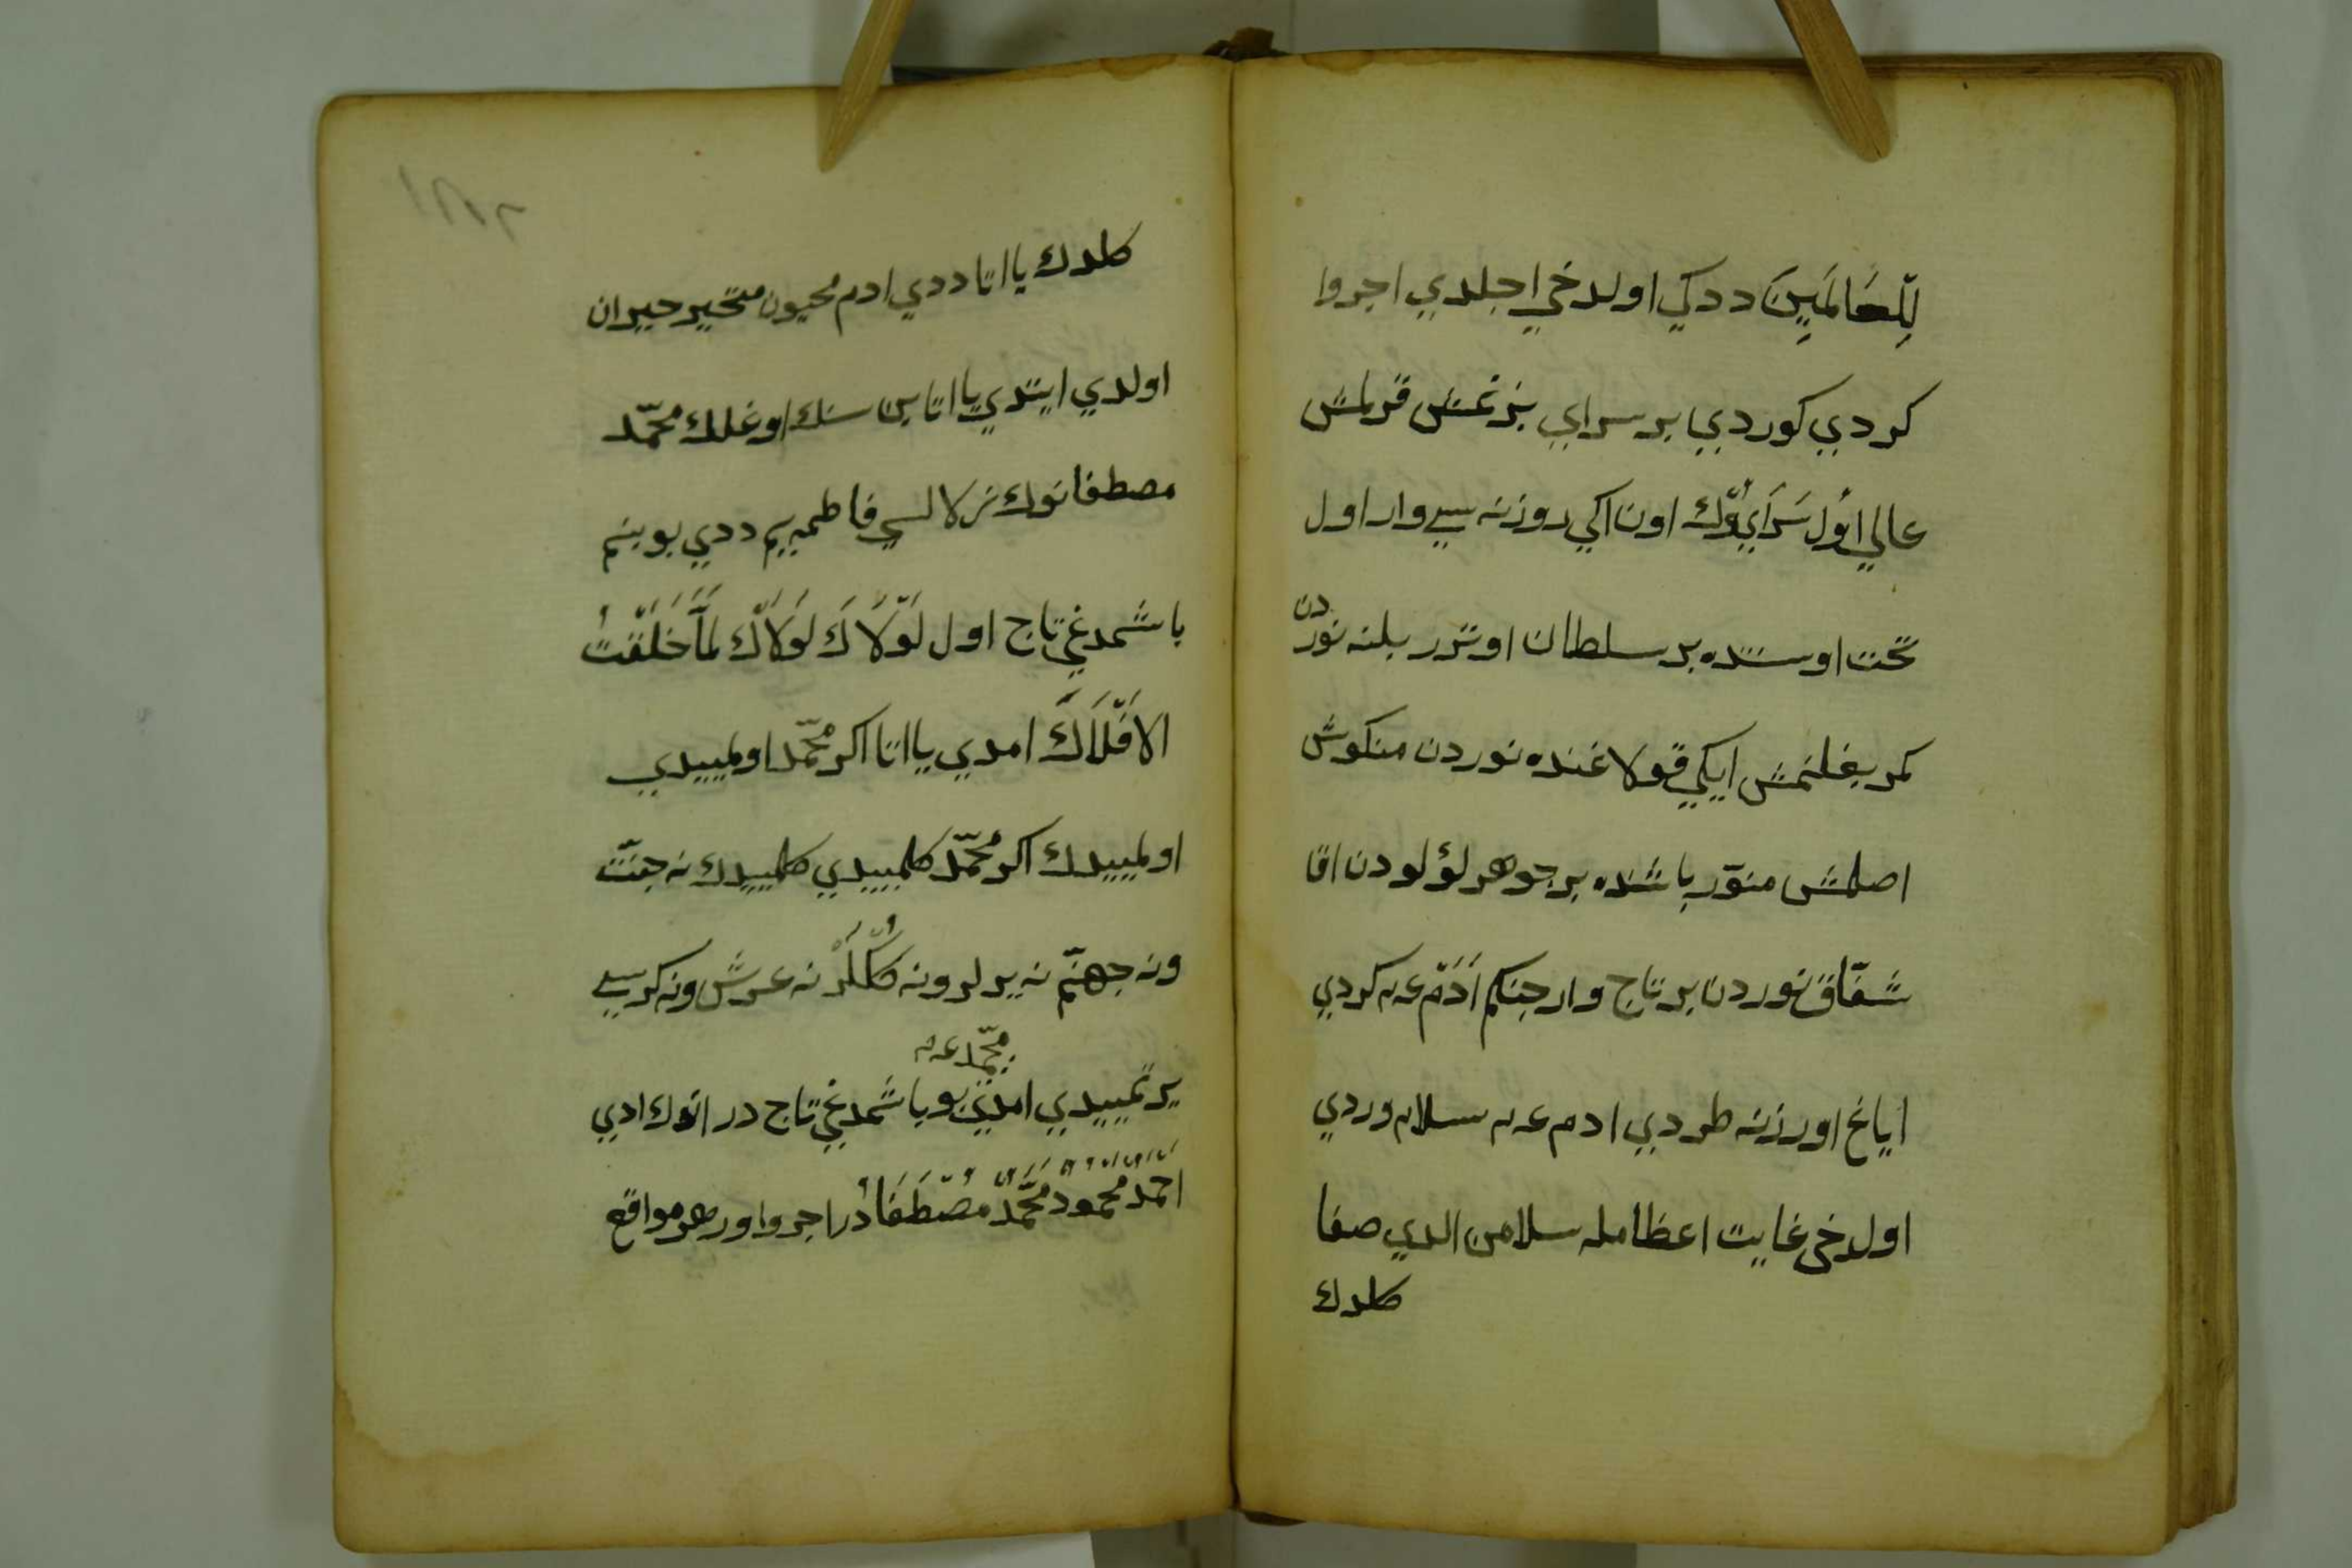 لِلْعَالَمَيِنَ ددكي اولدخي اجلدي اجروا
كردي كوردي بر سراي بزنمش قرلمش
عالي اوُل سَرَايُوڭ اون اكي روزنه سي وار اول
تخت اوستنده بر سلطان اوترر بلنه نوردن
كمر بغلنمش ايكي قولاغنده نوردن منكوش
اصلمش منوّر باشنده بر جوهر لؤلودن اقا
شفّاق نوردن بر تاج وار جنكم اَدَم عم كردي
اياغ اورزنه طردي ادم عم سلام وردي
اولدخي غايت اعظامله سلامن الدي صفا
كلدك
كلدك يا اتا ددي ادم محيون متحير حيران
اولدي ايتدي يا اتا بن سنك اوغلك محمّد
مصطفانوك نرلالسي فاطمه يم ددي بو بنم
باشمدغي تاج اول لَوْلَاكَ لَوْلَاكَ لَمَّا خَلَقْتُ
الاَفْلَاَكَ امدي يا اتا اكر محمّد اولمييدي
اولمييدك اكر محمّد كلمييدي كلمييدك نه جنّت
ونه جهنّم نه يرلر ونه كُكْلَرْ نه عرش ونه كرسي
يرتمييدي امدي بو باشمدغي تاج در انوك ادي
محمّد عم
احمد محمود محمّد مُصْطَفَا دُر اجروا ور هر مواقع